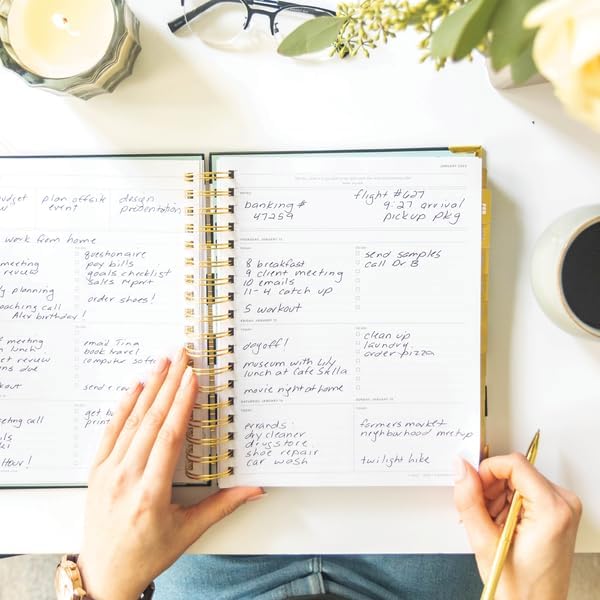 plan offsite
event
design
presentation
work from home
meeting
review
planning
call
Alex birthday!
questonaire
pay bills
goals checklist
sales report
order shoes!
meeting
lunch
review
due
email Tina
book travel
computer
meeting call
Hour!
get
print
JANUARY
banking #
47259
flight #627
9:27 arrival
pickup pkg
THURSDAY, JANUARY
8 breakfast
9 client meeting
10 emails
11-4 catch up
5 workout
send samples
call Dr B
FRIDAY, JANUARY
day off!
museum with Lily
lunch at Cafe Stella
movie night at home
clean up
laundry
order pizza
SATURDAY, JANUARY
SUNDAY, JANUARY
errands:
dry cleaner
drugstore
shoe repair
car wash
farmers market
neighborhood meetup
twilight hike